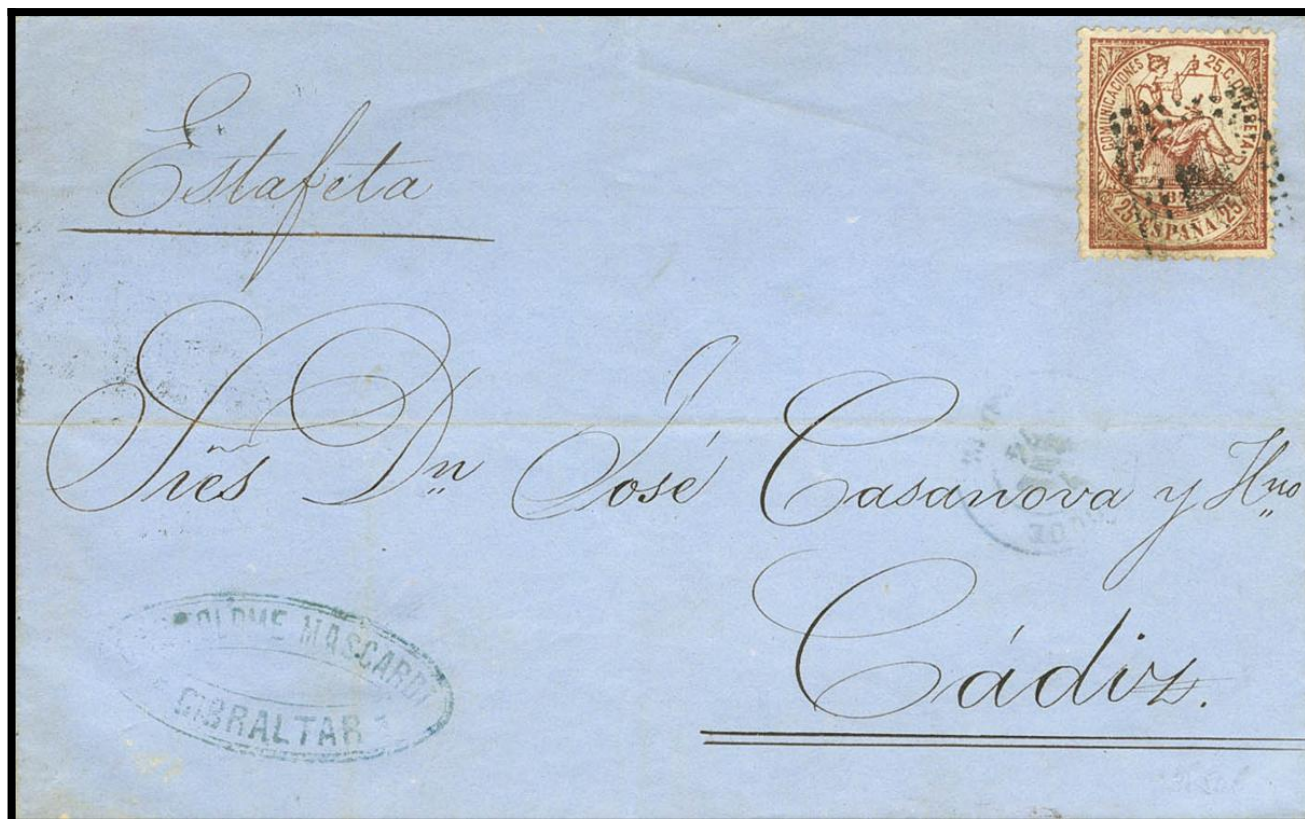 Estafeta
COMUNICACIONES 25 C. DE PESETA.
25 ESPAÑA 25
Sres Dn José Casanova y Hno
Cádiz.
MASCARDI
GIBRALTAR